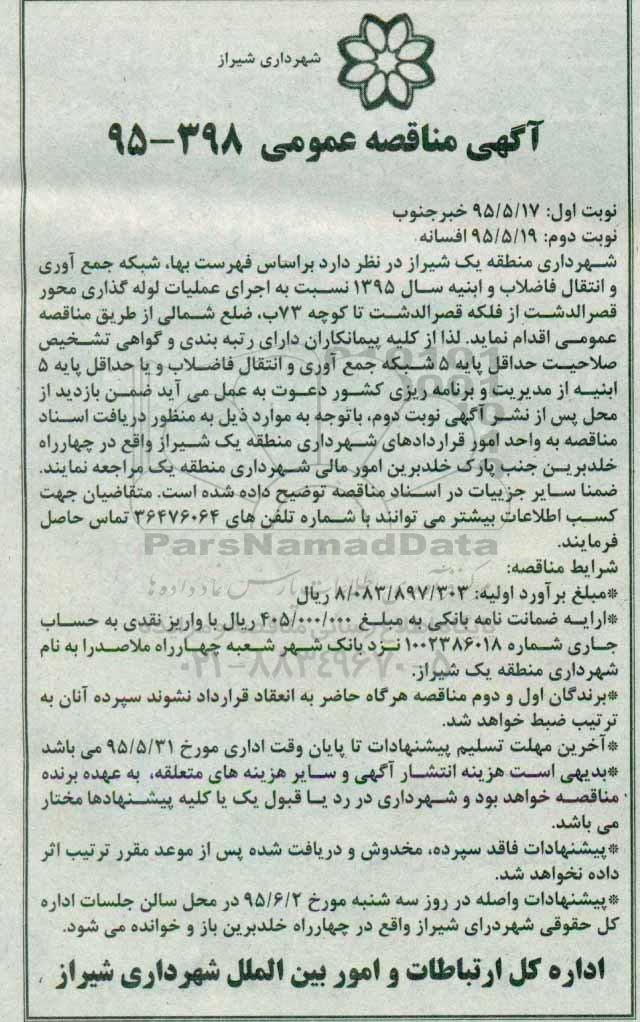 شهرداری شیراز
آگهی مناقصه عمومی ۳۹۸-۹۵
نوبت اول: ۹۵/۵/۱۷ خبرجنوب
نوبت دوم: ۹۵/۵/۱۹ افسانه
شهرداری منطقه یک شیراز در نظر دارد براساس فهرست بها، شبکه جمع آوری
و انتقال فاضلاب و ابنیه سال ۱۳۹۵ نسبت به اجرای عملیات لوله گذاری محور
قصرالدشت از فلکه قصرالدشت تا کوچه ۷۳ب، ضلع شمالی از طریق مناقصه
عمومی اقدام نماید. لذا از کلیه پیمانکاران دارای رتبه بندی و گواهی تشخیص
صلاحیت حداقل پایه ۵ شبکه جمع آوری و انتقال فاضلاب و یا حداقل پایه ۵
ابنیه از مدیریت و برنامه ریزی کشور دعوت به عمل می آید ضمن بازدید از
محل پس از نشر آگهی نوبت دوم، باتوجه به موارد ذیل به منظور دریافت اسناد
مناقصه به واحد امور قراردادهای شهرداری منطقه یک شیراز واقع در چهارراه
خلدبرین جنب پارک خلدبرین امور مالی شهرداری منطقه یک مراجعه نمایند.
ضمنا سایر جزییات در اسناد مناقصه توضیح داده شده است. متقاضیان جهت
کسب اطلاعات بیشتر می توانند با شماره تلفن های ۳۶۴۷۶۰۶۴ تماس حاصل
فرمایند.
ParsNamadData
شرایط مناقصه:
*مبلغ برآورد اولیه: ۸/۰۸۳/۸۹۷/۳۰۳ ریال
*ارایه ضمانت نامه بانکی به مبلغ ۴۰۵/۰۰۰/۰۰۰ ریال یا واریز نقدی به حساب
جاری شماره ۱۰۰۲۳۸۶۰۱۸ نزد بانک شهر شعبه چهارراه ملاصدرا به نام
شهرداری منطقه یک شیراز.
۰۲۱-۸۸۳۴۹۶۷۰-۵
*برندگان اول و دوم مناقصه هرگاه حاضر به انعقاد قرارداد نشوند سپرده آنان به
ترتیب ضبط خواهد شد.
*آخرین مهلت تسلیم پیشنهادات تا پایان وقت اداری مورخ ۹۵/۵/۳۱ می باشد
*بدیهی است هزینه انتشار آگهی و سایر هزینه های متعلقه، به عهده برنده
مناقصه خواهد بود و شهرداری در رد یا قبول یک یا کلیه پیشنهادها مختار
می باشد.
*پیشنهادات فاقد سپرده، مخدوش و دریافت شده پس از موعد مقرر ترتیب اثر
داده نخواهد شد.
*پیشنهادات واصله در روز سه شنبه مورخ ۹۵/۶/۲ در محل سالن جلسات اداره
کل حقوقی شهردرای شیراز واقع در چهارراه خلدبرین باز و خوانده می شود.
اداره کل ارتباطات و امور بین الملل شهرداری شیراز